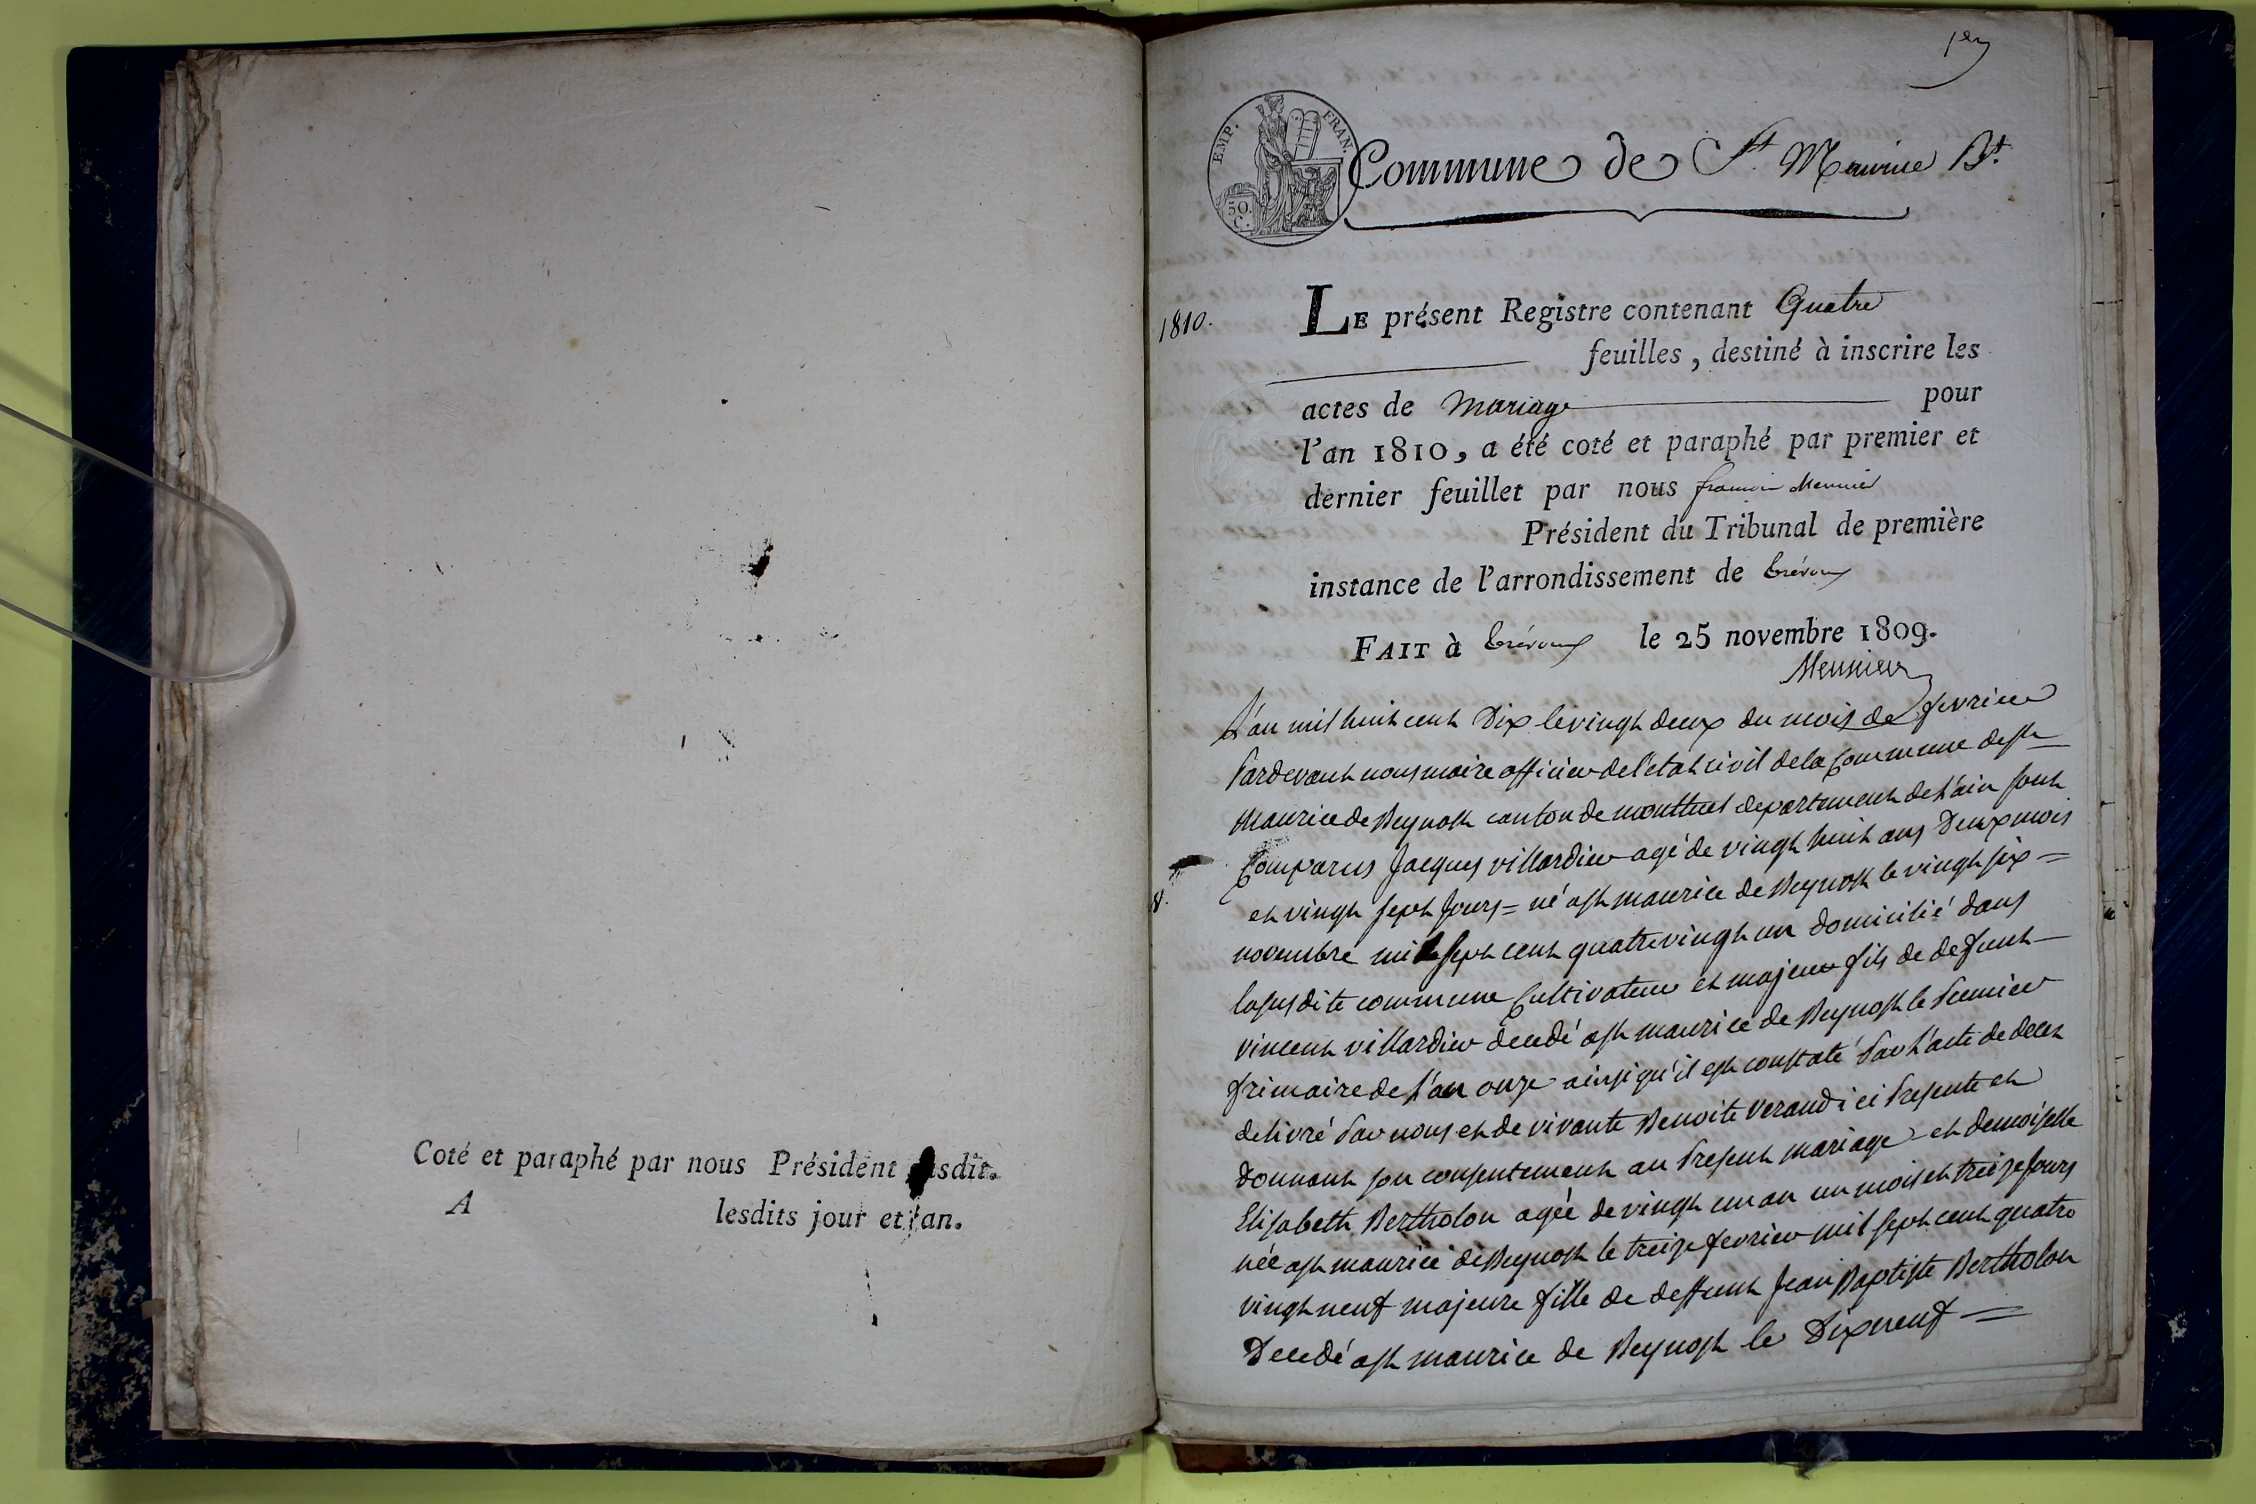 Coté et paraphé par nous Président susdit.
A lesdits jour et an.
1er
EMP. FRAN.
50. C.
Commune de St Maurice Bt.
1810.
LE présent Registre contenant Quatre
feuilles, destiné à inscrire les
actes de Mariage pour
l'an 1810, a été coté et paraphé par premier et
dernier feuillet par nous françois Meunier
Président du Tribunal de première
instance de l'arrondissement de trévoux
FAIT à trévoux le 25 novembre 1809.
Meunier
L'an mil huit cent Dix le vingt deux du mois de fevrier
Pardevant nous maire officier de l'etat civil de la Commune de st
Maurice de Beynost canton de montluel departement de l'ain sont
Comparus Jacques villardier agé de vingt huit ans Deux mois
et vingt sept Jours = né a st maurice de Beynost le vingt six =
novembre mil sept cent quatrevingt un domicilié dans
la susdite commune Cultivateur et majeur fils de defunt
vincent villardier decedé a st maurice de Beynost le Premier
frimaire de l'an onze ainsi qu'il est constaté Par l'acte de deces
delivré Par nous et de vivante Benoite Verand ici Presente et
donnant son consentement au Present mariage et demoiselle
Elisabeth Bertholon agée de vingt un an un mois et treize Jours
née a st maurice de Beynost le treize fevrier mil sept cent quatre
vingt neuf majeure fille de deffunt Jean Baptiste Bertholon
Decedé a st maurice de Beynost le Dixneuf =